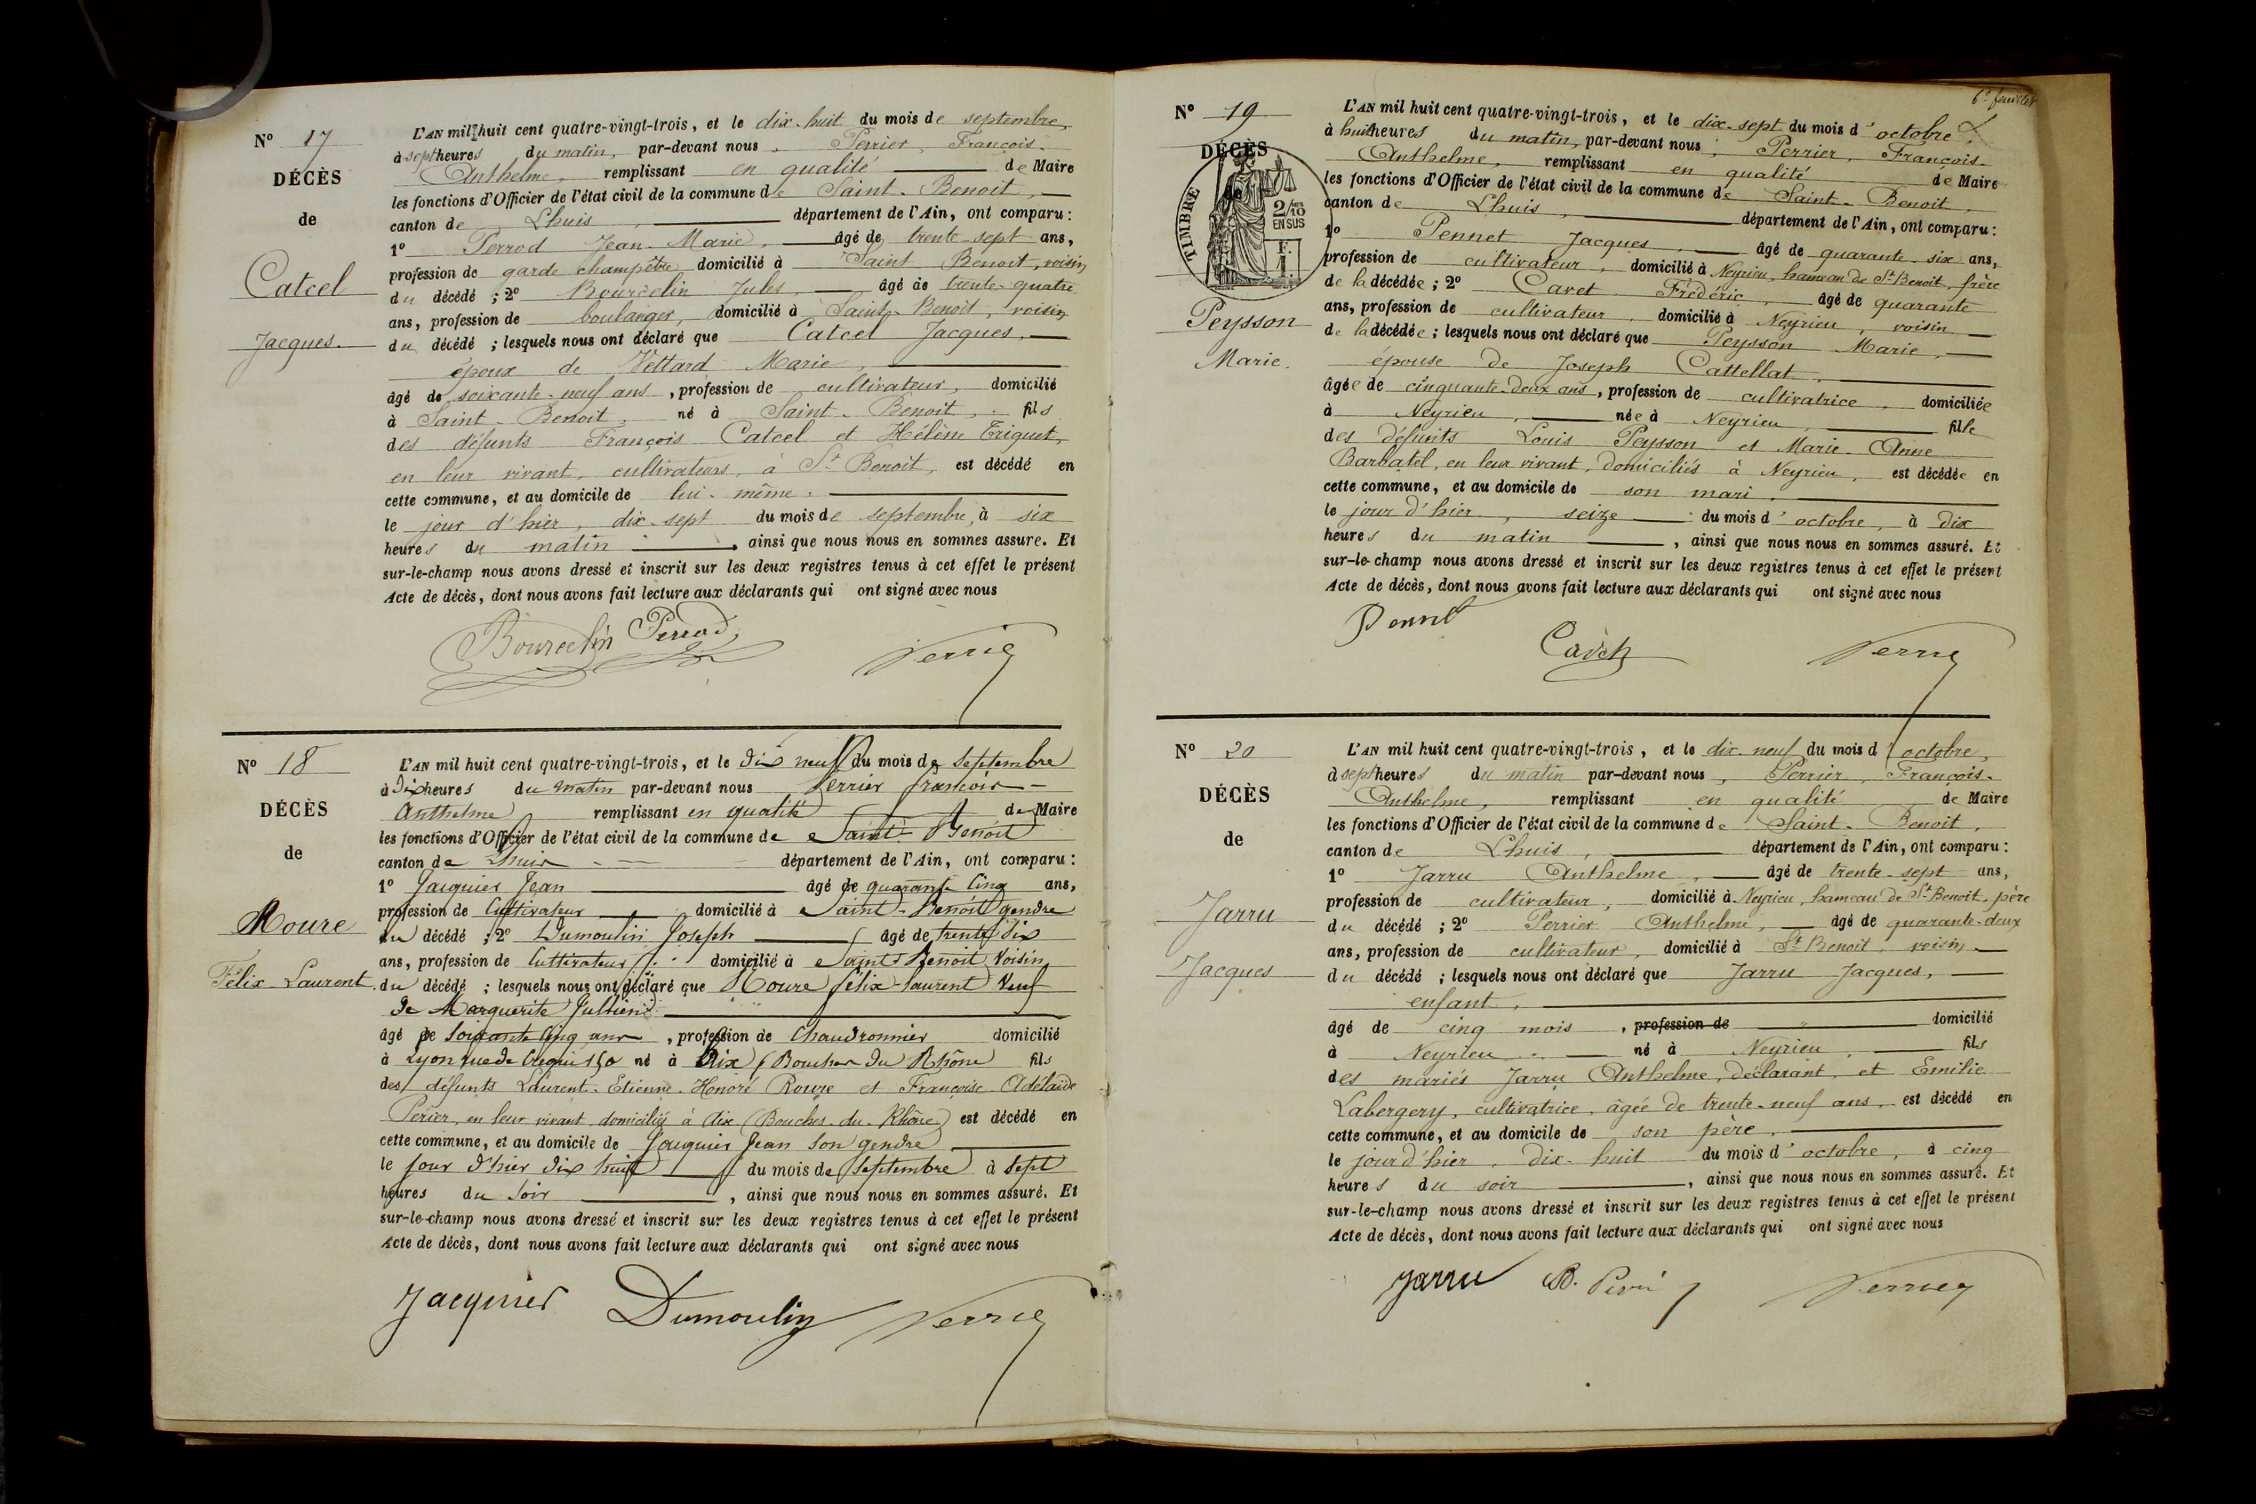 N° 17
DÉCÈS
de
Catcel
Jacques.
L'AN mil huit cent quatre-vingt-trois, et le dix-huit du mois de septembre,
à sept heures du matin, par-devant nous, Perrier, François-
Anthelme, remplissant en qualité de Maire
les fonctions d'Officier de l'état civil de la commune de Saint-Benoit,
canton de Lhuis, département de l'Ain, ont comparu :
1° Perrod Jean-Marie, âgé de trente-sept ans,
profession de garde champêtre domicilié à Saint Benoit, voisin
du décédé ; 2° Bourdelin Jules, âgé de trente-quatre
ans, profession de boulanger, domicilié à Saint-Benoit, voisin
du décédé ; lesquels nous ont déclaré que Catcel Jacques,
époux de Vettard Marie,
âgé de soixante-neuf ans, profession de cultivateur, domicilié
à Saint-Benoit, né à Saint-Benoit, fils
des défunts François Catcel et Hélène Triguet,
en leur vivant, cultivateurs, à St Benoit, est décédé en
cette commune, et au domicile de lui-même,
le jour d'hier, dix-sept du mois de septembre, à six
heures du matin, ainsi que nous nous en sommes assuré. Et
sur-le-champ nous avons dressé et inscrit sur les deux registres tenus à cet effet le présent
Acte de décès, dont nous avons fait lecture aux déclarants qui ont signé avec nous
Bourdelin Perrod Perrier
N° 18
DÉCÈS
de
Roure
Félix-Laurent.
L'AN mil huit cent quatre-vingt-trois, et le dix neuf du mois de septembre
à dix heures du matin par-devant nous Perrier françois-
Anthelme remplissant en qualité de Maire
les fonctions d'Officier de l'état civil de la commune de Saint-Benoit
canton de Lhuis département de l'Ain, ont comparu :
1° Jacquier Jean âgé de quarante cinq ans,
profession de Cultivateur domicilié à Saint-Benoit gendre
du décédé ; 2° Dumoulin Joseph âgé de trente dix
ans, profession de Cultivateur domicilié à Saint Benoit Voisin
du décédé ; lesquels nous ont déclaré que Roure félix-Laurent Veuf
de Marguerite Jullien
âgé de Soixante cinq ans, profession de Chaudronnier domicilié
à Lyon rue de Crequi 150 né à Aix (Bouches du Rhône) fils
des défunts Laurent-Etienne-Honoré Roure et Françoise Adélaïde
Périer, en leur vivant domiciliés à Aix (Bouches-du-Rhône) est décédé en
cette commune, et au domicile de Jacquier Jean son gendre
le jour d'hier dix huit du mois de septembre à sept
heures du soir, ainsi que nous nous en sommes assuré. Et
sur-le-champ nous avons dressé et inscrit sur les deux registres tenus à cet effet le présent
Acte de décès, dont nous avons fait lecture aux déclarants qui ont signé avec nous
Jacquier Dumoulin Perrier
6e feuillet
N° 19
DÉCÈS
de
TIMBRE
2/10
EN SUS
Peysson
Marie.
L'AN mil huit cent quatre-vingt-trois, et le dix-sept du mois d'octobre,
à huit heures du matin, par-devant nous, Perrier, François-
Anthelme, remplissant en qualité de Maire
les fonctions d'Officier de l'état civil de la commune de Saint-Benoit,
canton de Lhuis, département de l'Ain, ont comparu :
1° Pennet Jacques, âgé de quarante-six ans,
profession de cultivateur, domicilié à Neyrieu, hameau de St Benoit, frère
de la décédée ; 2° Cavet Frédéric, âgé de quarante
ans, profession de cultivateur, domicilié à Neyrieu, voisin
de la décédée ; lesquels nous ont déclaré que Peysson Marie,
épouse de Joseph Cattellat,
âgée de cinquante-deux ans, profession de cultivatrice, domiciliée
à Neyrieu, née à Neyrieu, fille
des défunts Louis Peysson et Marie-Anne
Barbatel, en leur vivant, domiciliés à Neyrieu, est décédée en
cette commune, et au domicile de son mari,
le jour d'hier, seize du mois d'octobre, à dix
heures du matin, ainsi que nous nous en sommes assuré. Et
sur-le-champ nous avons dressé et inscrit sur les deux registres tenus à cet effet le présent
Acte de décès, dont nous avons fait lecture aux déclarants qui ont signé avec nous
Pennet
Perrier
N° 20
DÉCÈS
de
Jarru
Jacques
L'AN mil huit cent quatre-vingt-trois, et le dix-neuf du mois d'octobre,
à sept heures du matin par-devant nous, Perrier, François-
Anthelme, remplissant en qualité de Maire
les fonctions d'Officier de l'état civil de la commune de Saint-Benoit,
canton de Lhuis, département de l'Ain, ont comparu :
1° Jarru Anthelme, âgé de trente-sept ans,
profession de cultivateur, domicilié à Neyrieu, hameau de St-Benoit, père
du décédé ; 2° Perrier Anthelme, âgé de quarante-deux
ans, profession de cultivateur, domicilié à St Benoit, voisin
du décédé ; lesquels nous ont déclaré que Jarru Jacques,
enfant,
âgé de cinq mois, profession de " domicilié
à Neyrieu né à Neyrieu, fils
des mariés Jarru Anthelme, déclarant, et Emilie
Labergery, cultivatrice, âgée de trente-neuf ans, est décédé en
cette commune, et au domicile de son père,
le jour d'hier, dix-huit du mois d'octobre, à cinq
heures du soir, ainsi que nous nous en sommes assuré. Et
sur-le-champ nous avons dressé et inscrit sur les deux registres tenus à cet effet le présent
Acte de décès, dont nous avons fait lecture aux déclarants qui ont signé avec nous
Jarru Perrier